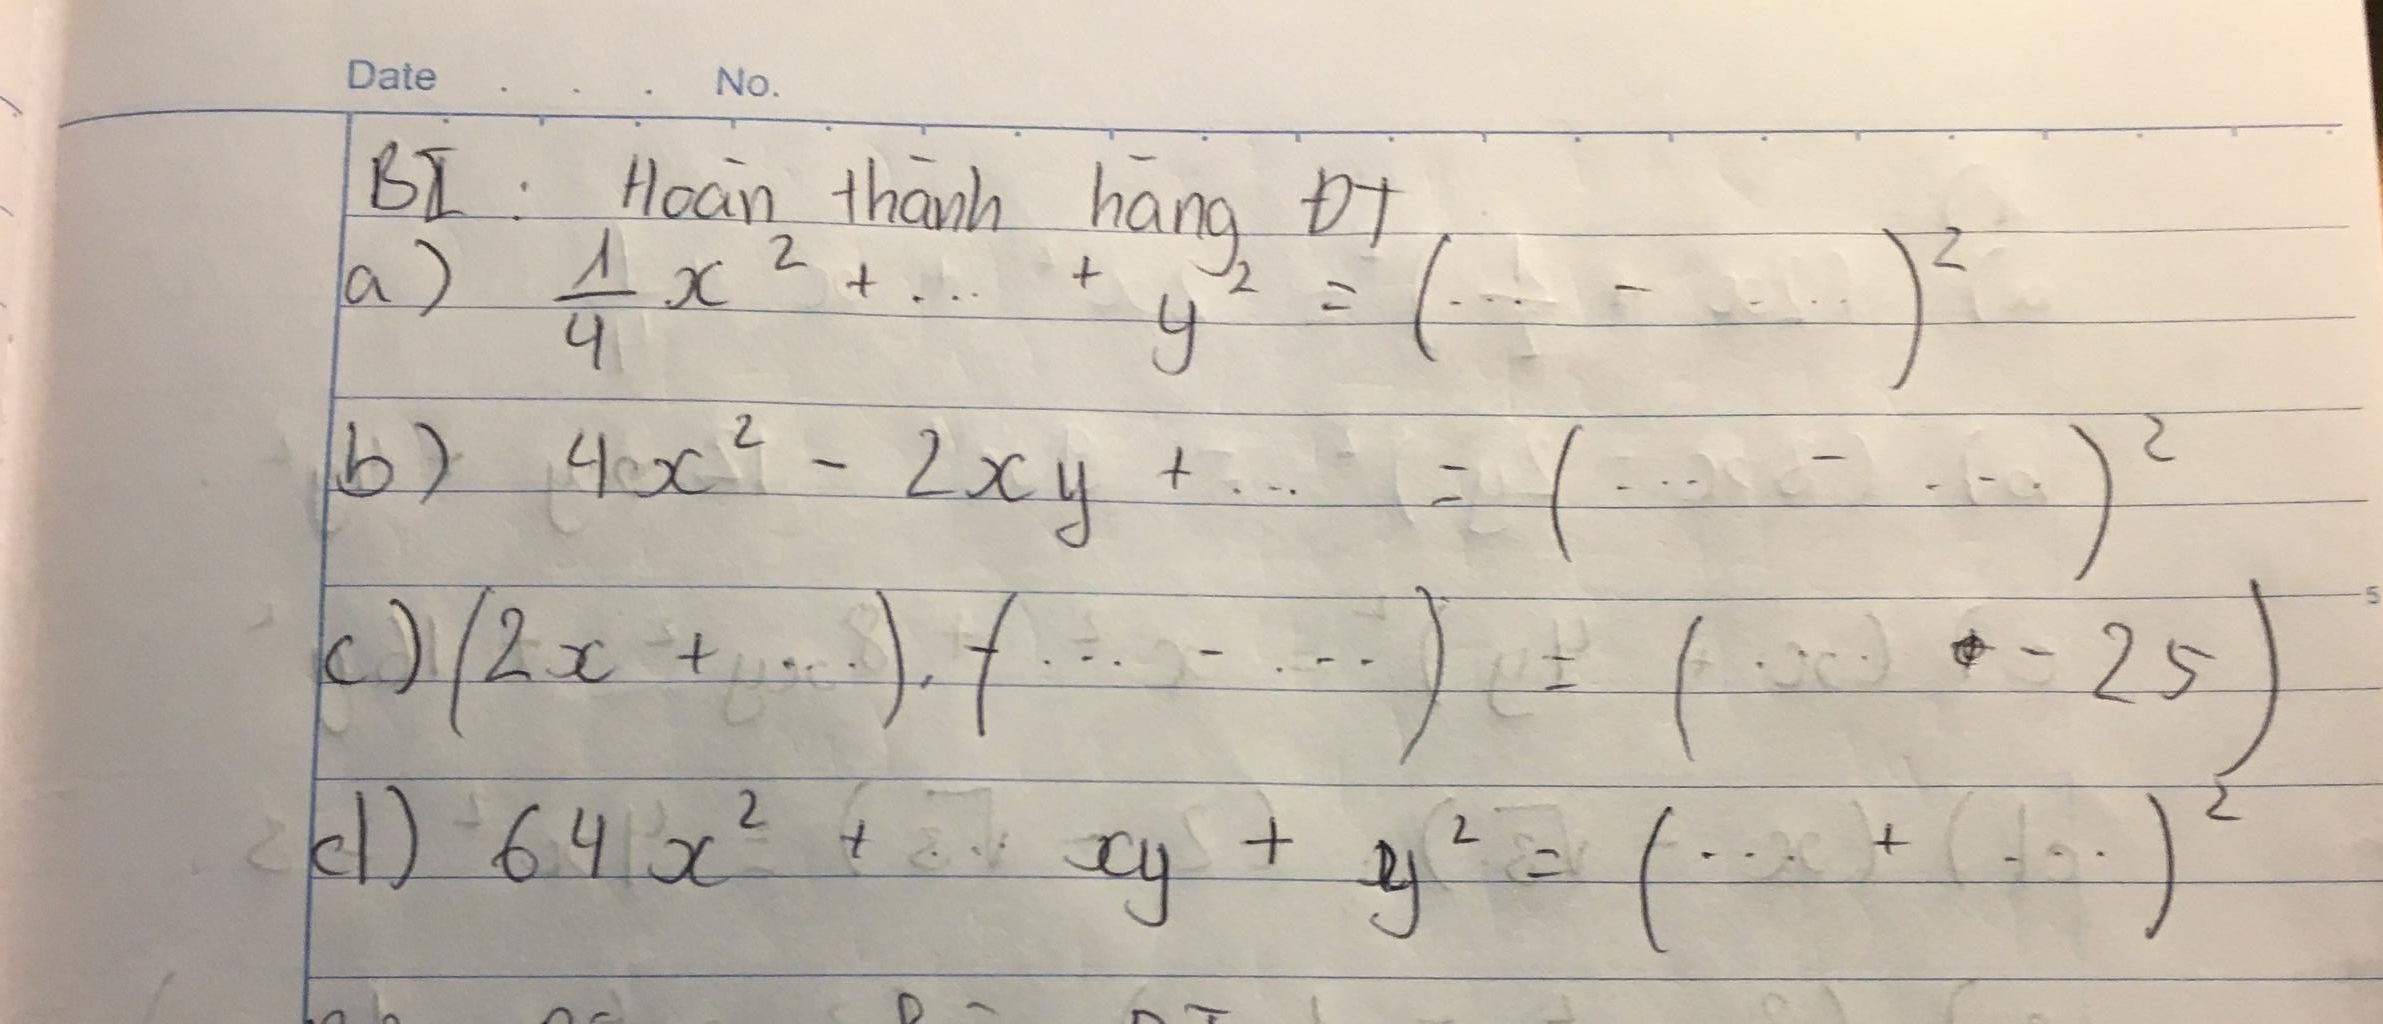 Date . . . No.
BI : Hoàn thành hằng ĐT
a) 1/4 x² + ... + y² = (... - ...)²
b) 4x² - 2xy + ... = (... - ...)²
c) (2x + ....) . (... - ...) = (... - 25)
d) 64x² + ... xy + y² = (... + ...)²
5